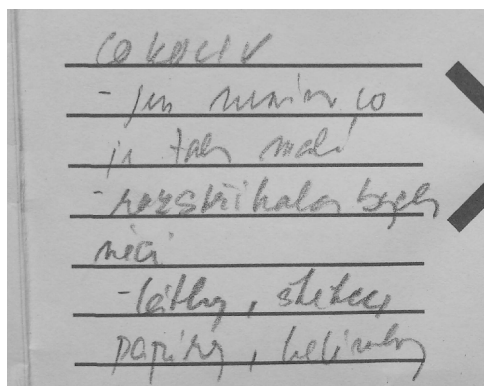 cokoliv
- jen nevím co
je tak malí
- rozstříhala bych
něci
- látky, štetce,
papíry, kelímky